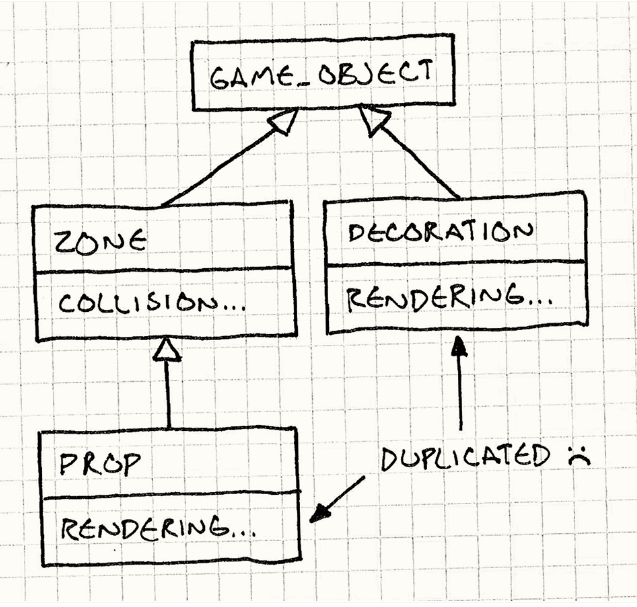 GAME_OBJECT
ZONE
COLLISION...
DECORATION
RENDERING...
PROP
RENDERING...
DUPLICATED :(